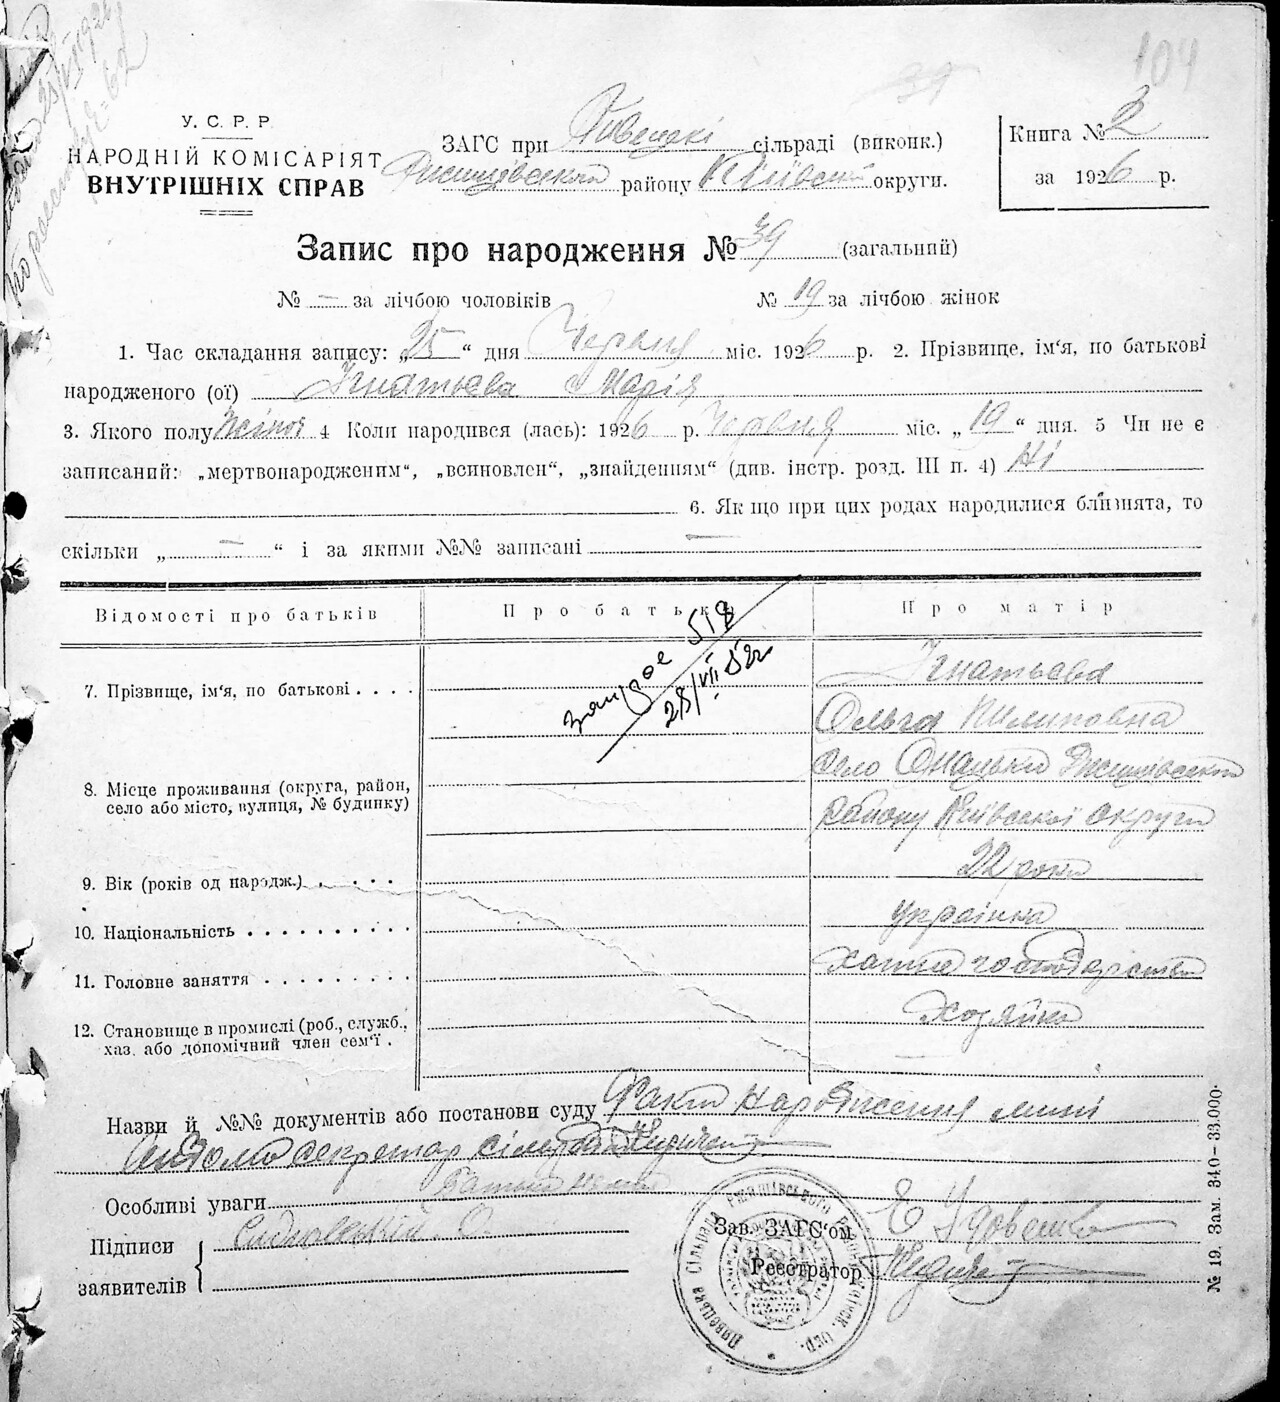 104
У. С. Р. Р.
НАРОДНІЙ КОМІСАРІЯТ
ВНУТРІШНІХ СПРАВ
ЗАГС при сільраді (виконк.)
району Київської округи.
Книга № 2
за 1926 р.
Запис про народження № 39 (загальний)
№ — за лічбою чоловіків № 19 за лічбою жінок
1. Час складання запису: „25“ дня Червня міс. 1926 р. 2. Прізвище, ім‘я, по батькові
народженого (ої) Ігнатьєва Марія
3. Якого полу жіноч 4 Коли народився (лась): 1926 р. Червня міс. „19“ дня. 5 Чи не є
записаний: „мертвонародженим“, „всиновлен“, „знайденням“ (див. інстр. розд. III п. 4) Ні
6. Як що при цих родах народилися близнята, то
скільки „ — “ і за якими №№ записані —
Відомості про батьків Про батька Про матір
518
28/VII 52
7. Прізвище, ім‘я, по батькові . . . . Ігнатьєва
Ольга Пилиповна
8. Місце проживання (округа, район,
село або місто, вулиця, № будинку)
село
району Київської округи
9. Вік (років од народж.) . . . . . 22 роки
10. Національність . . . . . . . . . . українка
11. Головне заняття . . . . . . . . . хатнє господарство
12. Становище в промислі (роб., служб.,
хаз. або допомічний член сем‘ї . хозяйка
Назви й №№ документів або постанови суду Факт народження мині
відомо секретар сільради
Особливі уваги Батька немає
Підписи
заявителів
Зав. ЗАГС‘ом Е Удовенко
Реєстратор
№ 19. Зам. 340—33.000.